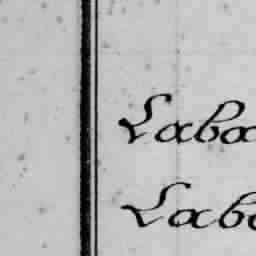 Laba
Labo